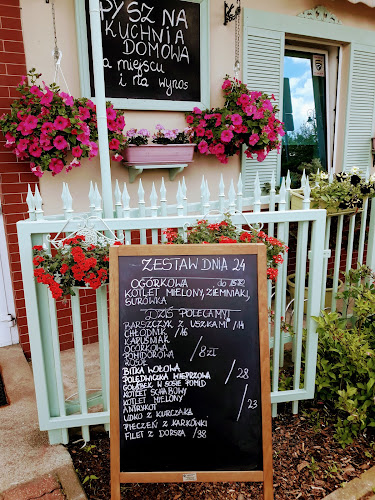 PYSZNA
KUCHNIA
DOMOWA
na miejscu
i na wynos
ZESTAW DNIA 24
OGÓRKOWA do 15:00
KOTLET MIELONY, ZIEMNIAKI,
SURÓWKA
DZIŚ POLECAMY
BARSZCZYK Z USZKAMI /14
CHŁODNIK /16
KAPUŚNIAK
OGÓRKOWA
POMIDOROWA / 8 ZŁ
ROSÓŁ
BITKA WOŁOWA
POLĘDWICZKA WIEPRZOWA / 28
GOŁĄBEK W SOSIE POMID.
KOTLET SCHABOWY
KOTLET MIELONY / 23
ANTRYKOT
UDKO Z KURCZAKA
PIECZEŃ Z KARKÓWKI
FILET Z DORSZA /38